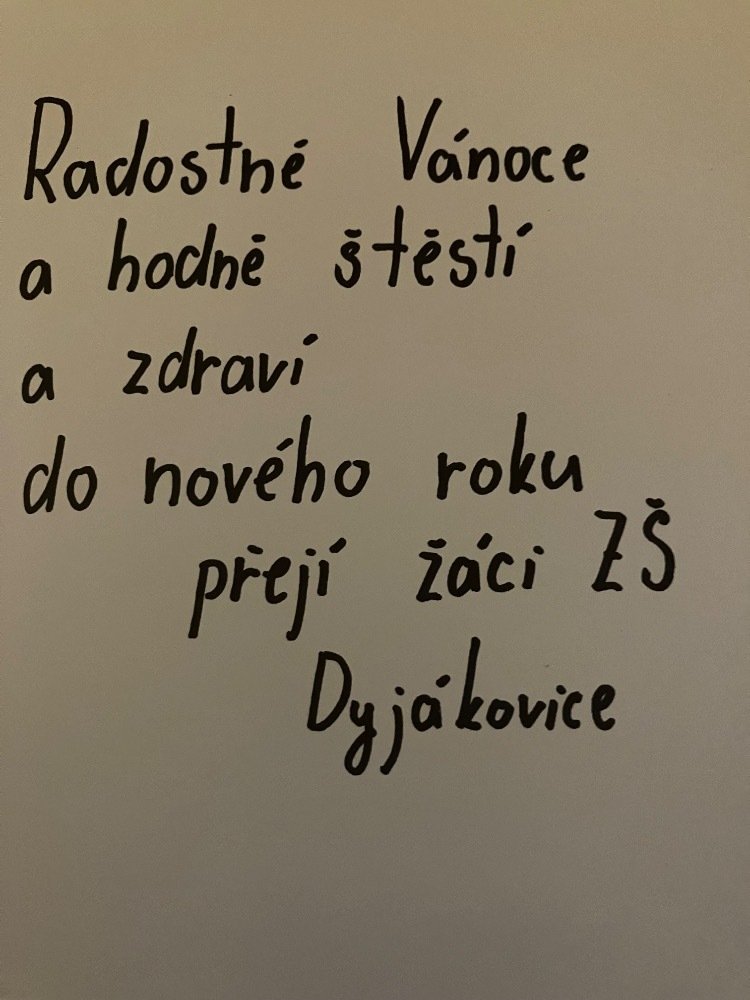 Radostné Vánoce
a hodně štěstí
a zdraví
do nového roku
přejí žáci ZŠ
Dyjákovice